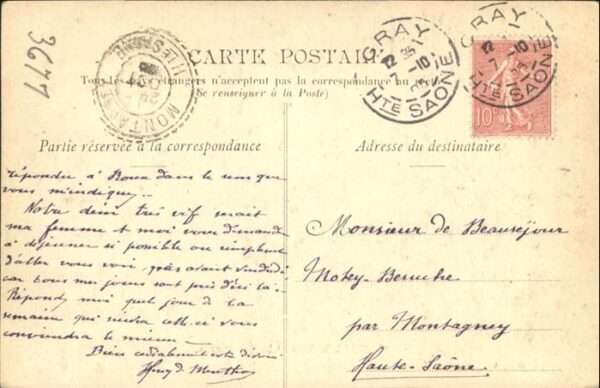 3677
CARTE POSTALE
Tous les pays étrangers n'acceptent pas la correspondance au recto
(Se renseigner à la Poste)
GRAY
12
7 -10
HTE SAÔNE
GRAY
12
7 -10
HTE SAÔNE
10
MONTAGNEY
HTE SAONE
Partie réservée à la correspondance
Adresse du destinataire
répondre à dans le sens que
vous m'indiquez..
Notre désir très vif serait
ma femme et moi vous demander
à déjeuner si possible ou simplement
d'aller vous voir, pas avant vendredi
car tous mes jours sont pris d'ici là.
Réponds moi quel jour de la
semaine qui suivra celle-ci vous
conviendra le mieux
Bien cordialement votre
Monsieur de Beauséjour
Motey-Besuche
par Montagney
Haute-Saône.